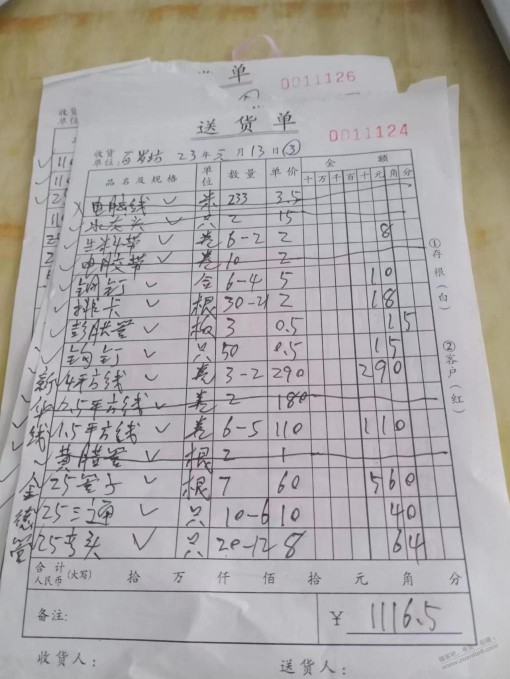 单
0011126
送货单
0011124
收货单位: 百岁坊 23年元月13日③
品名及规格 单位 数量 单价 金额 十万千百十元角分
电脑线 米 233 3.5
水龙头 只 2 15
生料带 卷 6-2 2 8
电胶带 卷 10 2
钢钉 盒 6-4 5 10
排卡 根 30-21 2 18
膨胀管 3 0.5 15
只 50 0.5 15
新 4平方线 卷 3-2 290 290
2.5平方线 卷 2 180
线 1.5平方线 卷 6-5 110 110
黄腊管 根 2 1
金 25管子 根 7 60 560
德 25三通 只 10-6 10 40
管 25弯头 只 20-12 8 64
合计人民币(大写) 拾 万 仟 佰 拾 元 角 分
备注: ¥ 1116.5
收货人: 送货人:
①存根(白)
②客户(红)